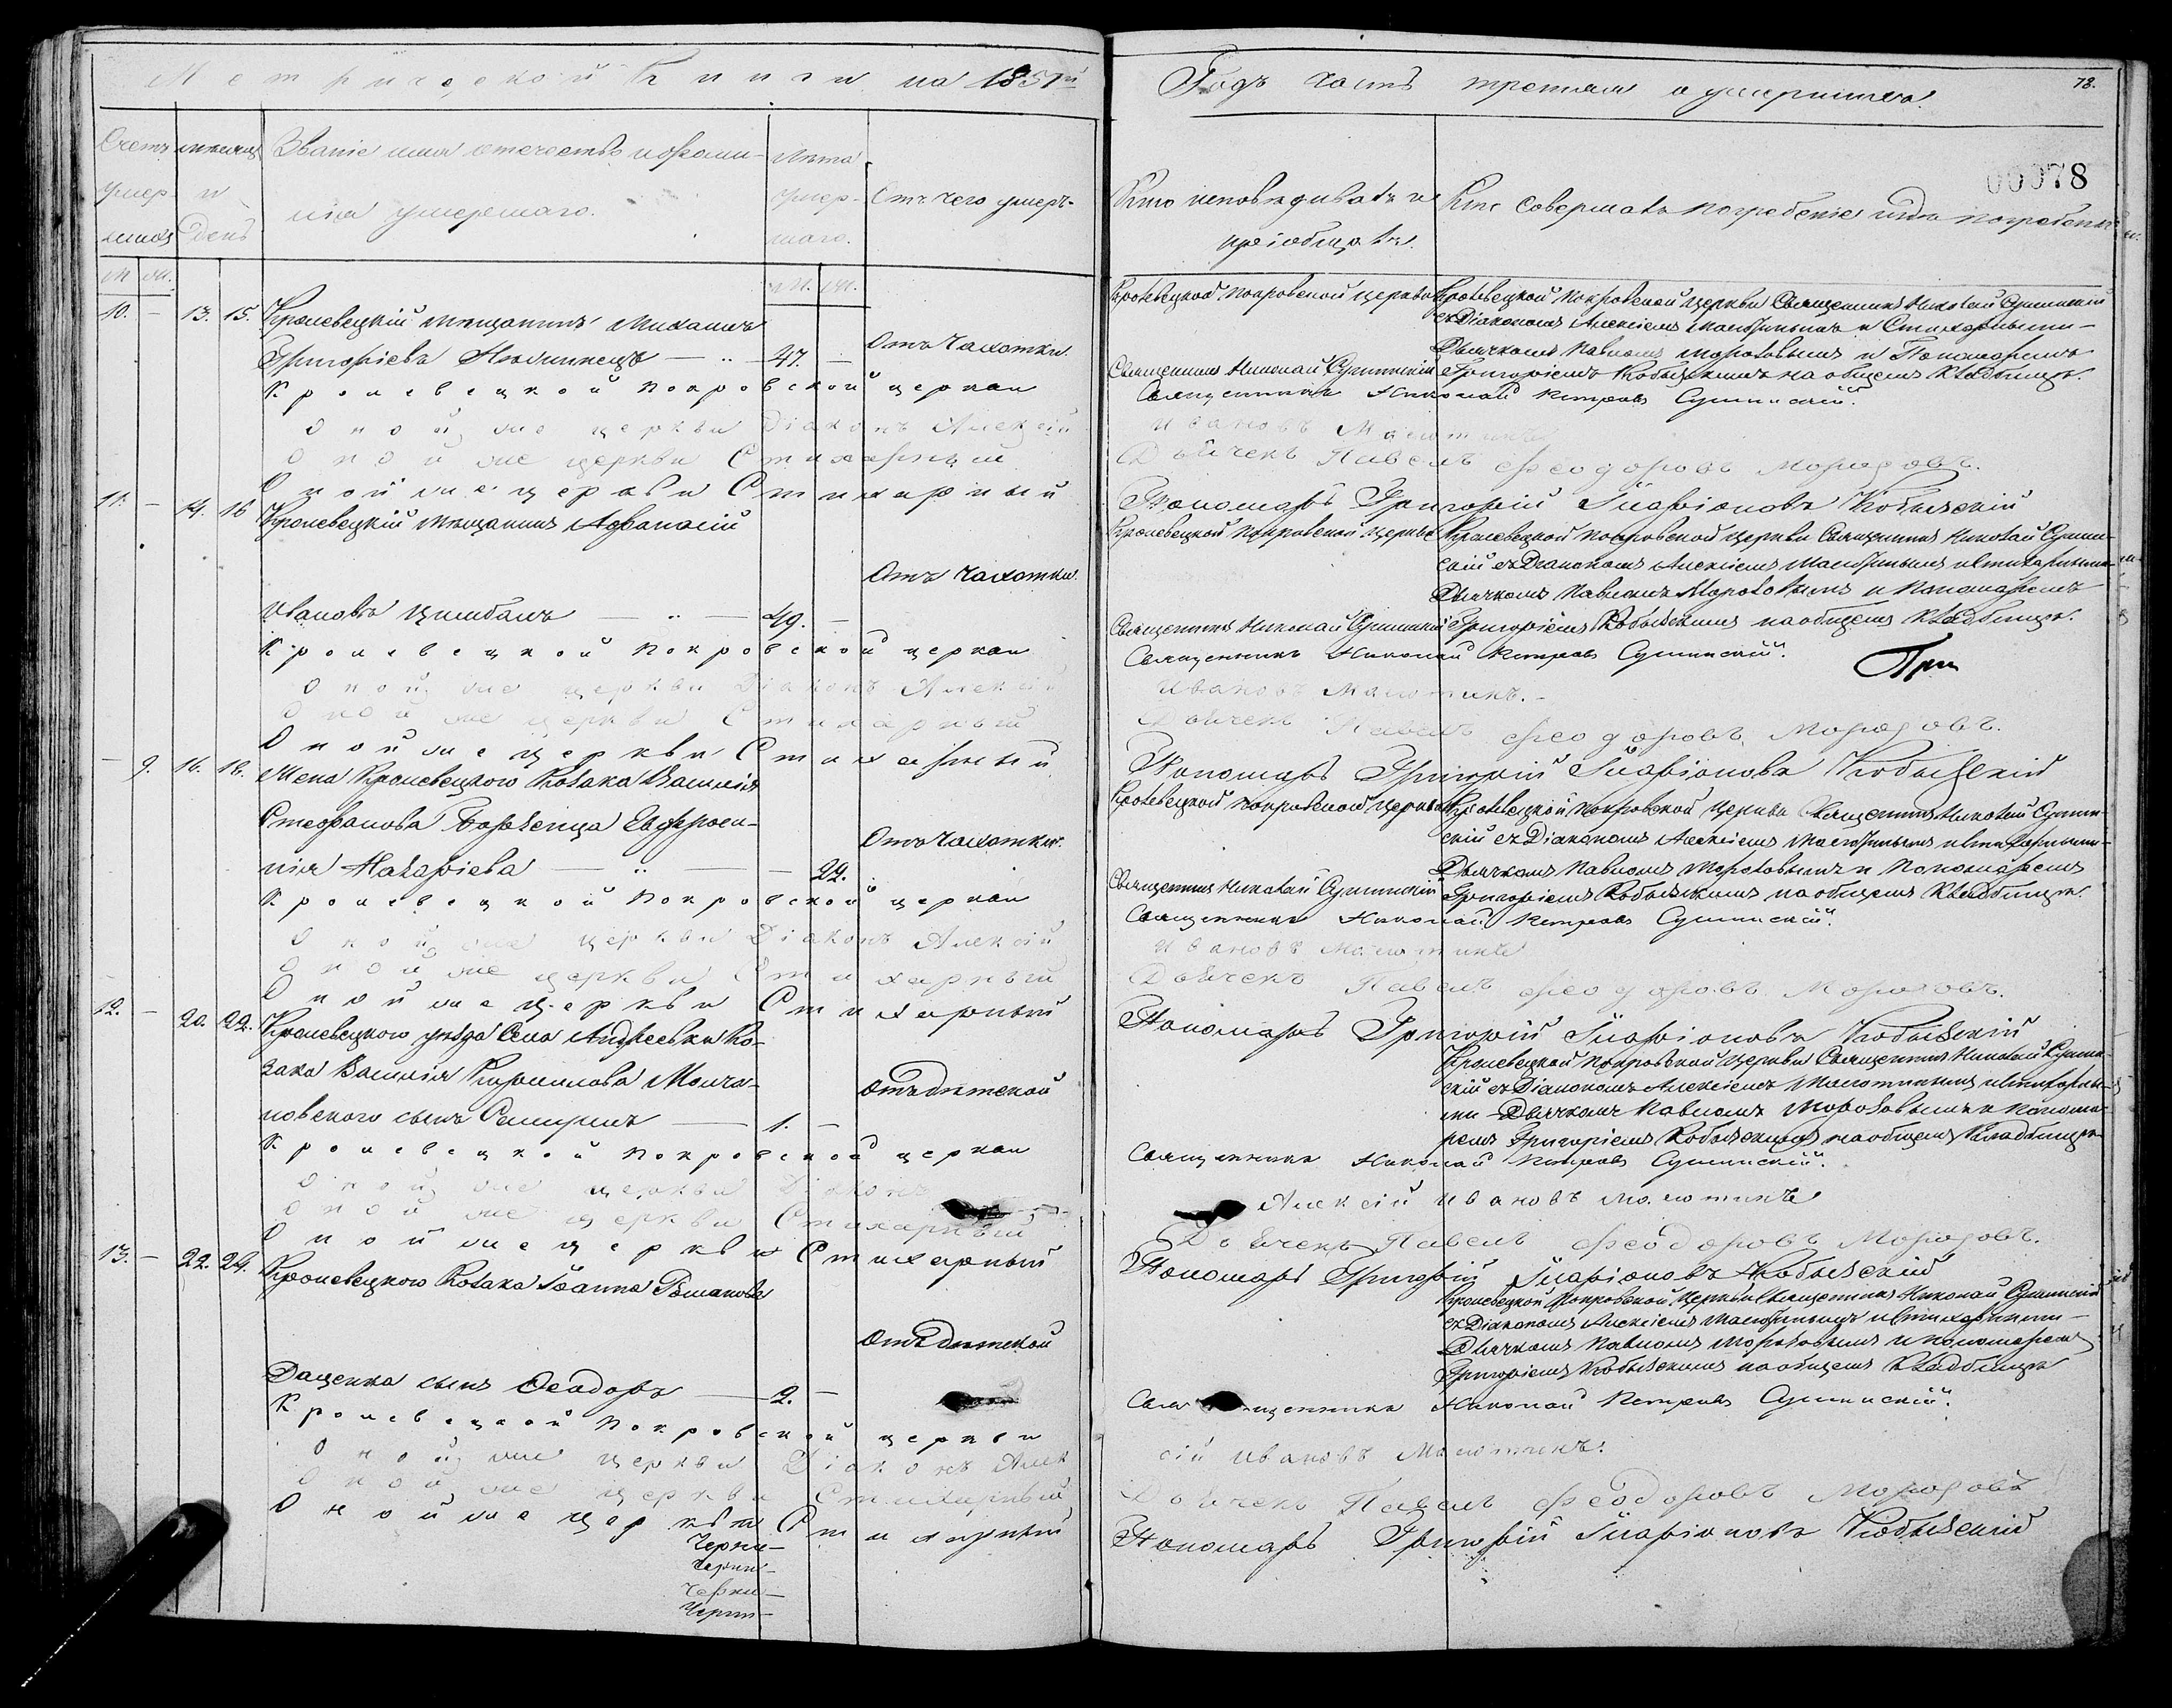 Метрической Книги на 1851й
Годъ часть третья о умершихъ.
78.
00078
Счетъ умер-шихъ
мѣсяцъ и день
Званіе имя отечество и фами-
лія умершаго.
Лѣта умер-шаго.
Отъ чего умеръ.
Кто исповѣдывалъ и
пріобщалъ.
Кто совершалъ погребеніе и гдѣ погребены
10. — 13. 15. Кролевецкій мѣщанинъ Михаилъ
Григоріевъ — „ — 47. —
Отъ чахотки.
Кролевецкой Покровской церкви
Священникъ Николай Сушинскій
Кролевецкой Покровской церкви Священникъ Николай Сушинскій
съ Діакономъ Алексіемъ Малютинымъ и Стихарными—
Дьячкомъ Павломъ Морозовымъ и Пономаремъ
Григоріемъ Кобызскимъ на общемъ кладбищѣ.
Кролевецкой Покровской церкви Священникъ Николай Петровъ Сушинскій.
Оной же церкви Діаконъ Алексій Ивановъ Малютинъ
Оной же церкви Стихарный Дьячекъ Павелъ Феодоровъ Морозовъ.
Оной же церкви Стихарный Пономарь Григорій Иларіоновъ Кобызскій
11. — 14. 16 Кролевецкій мѣщанинъ Афанасій
Ивановъ Цимбалъ — „ — 49. —
Отъ чахотки.
Кролевецкой Покровской церкви
Священникъ Николай Сушинскій
Кролевецкой Покровской церкви Священникъ Николай Сушин-
скій съ Діакономъ Алексіемъ Малютинымъ и Стихарными—
Дьячкомъ Павломъ Морозовымъ и Пономаремъ
Григоріемъ Кобызскимъ на общемъ кладбищѣ.
Кролевецкой Покровской церкви Священникъ Николай Петровъ Сушинскій.
При
Оной же церкви Діаконъ Алексій Ивановъ Малютинъ.
Оной же церкви Стихарный Дьячекъ Павелъ Феодоровъ Морозовъ.
Оной же церкви Стихарный Пономарь Григорій Иларіоновъ Кобызскій
— 9. 16. 18. Жена Кролевецкого Козака Василія
Стефанова Евфроси-
нія Макаріева — „ — 22.
Отъ чахотки.
Кролевецкой Покровской церкви
Священникъ Николай Сушинскій
Кролевецкой Покровской церкви Священникъ Николай Сушин-
скій съ Діакономъ Алексіемъ Малютинымъ и Стихарными—
Дьячкомъ Павломъ Морозовымъ и Пономаремъ
Григоріемъ Кобызскимъ на общемъ кладбищѣ.
Кролевецкой Покровской церкви Священникъ Николай Петровъ Сушинскій.
Оной же церкви Діаконъ Алексій Ивановъ Малютинъ
Оной же церкви Стихарный Дьячекъ Павелъ Феодоровъ Морозовъ.
Оной же церкви Стихарный Пономарь Григорій Иларіоновъ Кобызскій
12. — 20. 22. Кролевецкого уѣзда Села Андреевки Ко-
зака Василія Кириллова Молча-
новского сынъ — 1. —
Отъ дѣтской
Кролевецкой Покровской церкви Священникъ Николай Сушин-
скій съ Діакономъ Алексіемъ Малютинымъ и Стихарны-
ми—Дьячкомъ Павломъ Морозовымъ и Понома-
ремъ Григоріемъ Кобызскимъ на общемъ кладбищѣ
Кролевецкой Покровской церкви Священникъ Николай Петровъ Сушинскій.
Оной же церкви Діаконъ Алексій Ивановъ Малютинъ
Оной же церкви Стихарный Дьячекъ Павелъ Феодоровъ Морозовъ.
Оной же церкви Стихарный Пономарь Григорій Иларіоновъ Кобызскій
13. — 22. 24. Кролевецкого Козака Іоанна Романова
Даценка сынъ Феодоръ — 2. —
Отъ дѣтской
Кролевецкой Покровской церкви Священникъ Николай Сушинскій
съ Діакономъ Алексіемъ Малютинымъ и Стихарными—
Дьячкомъ Павломъ Морозовымъ и Пономаремъ
Григоріемъ Кобызскимъ на общемъ кладбищѣ
Кролевецкой Покровской церкви Священникъ Николай Петровъ Сушинскій.
Оной же церкви Діаконъ Алексій Ивановъ Малютинъ.
Оной же церкви Стихарный Дьячекъ Павелъ Феодоровъ Морозовъ
Оной же церкви Стихарный Пономарь Григорій Иларіоновъ Кобызскій